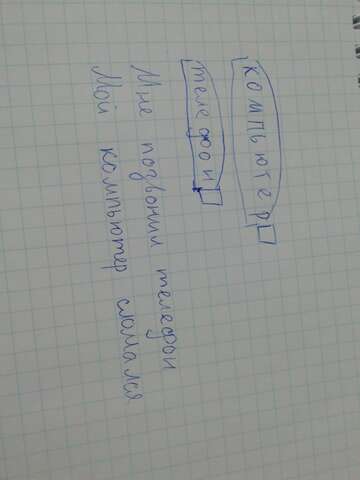 компьютер
телефон
Мне позвонил телефон
Мой компьютер сломался